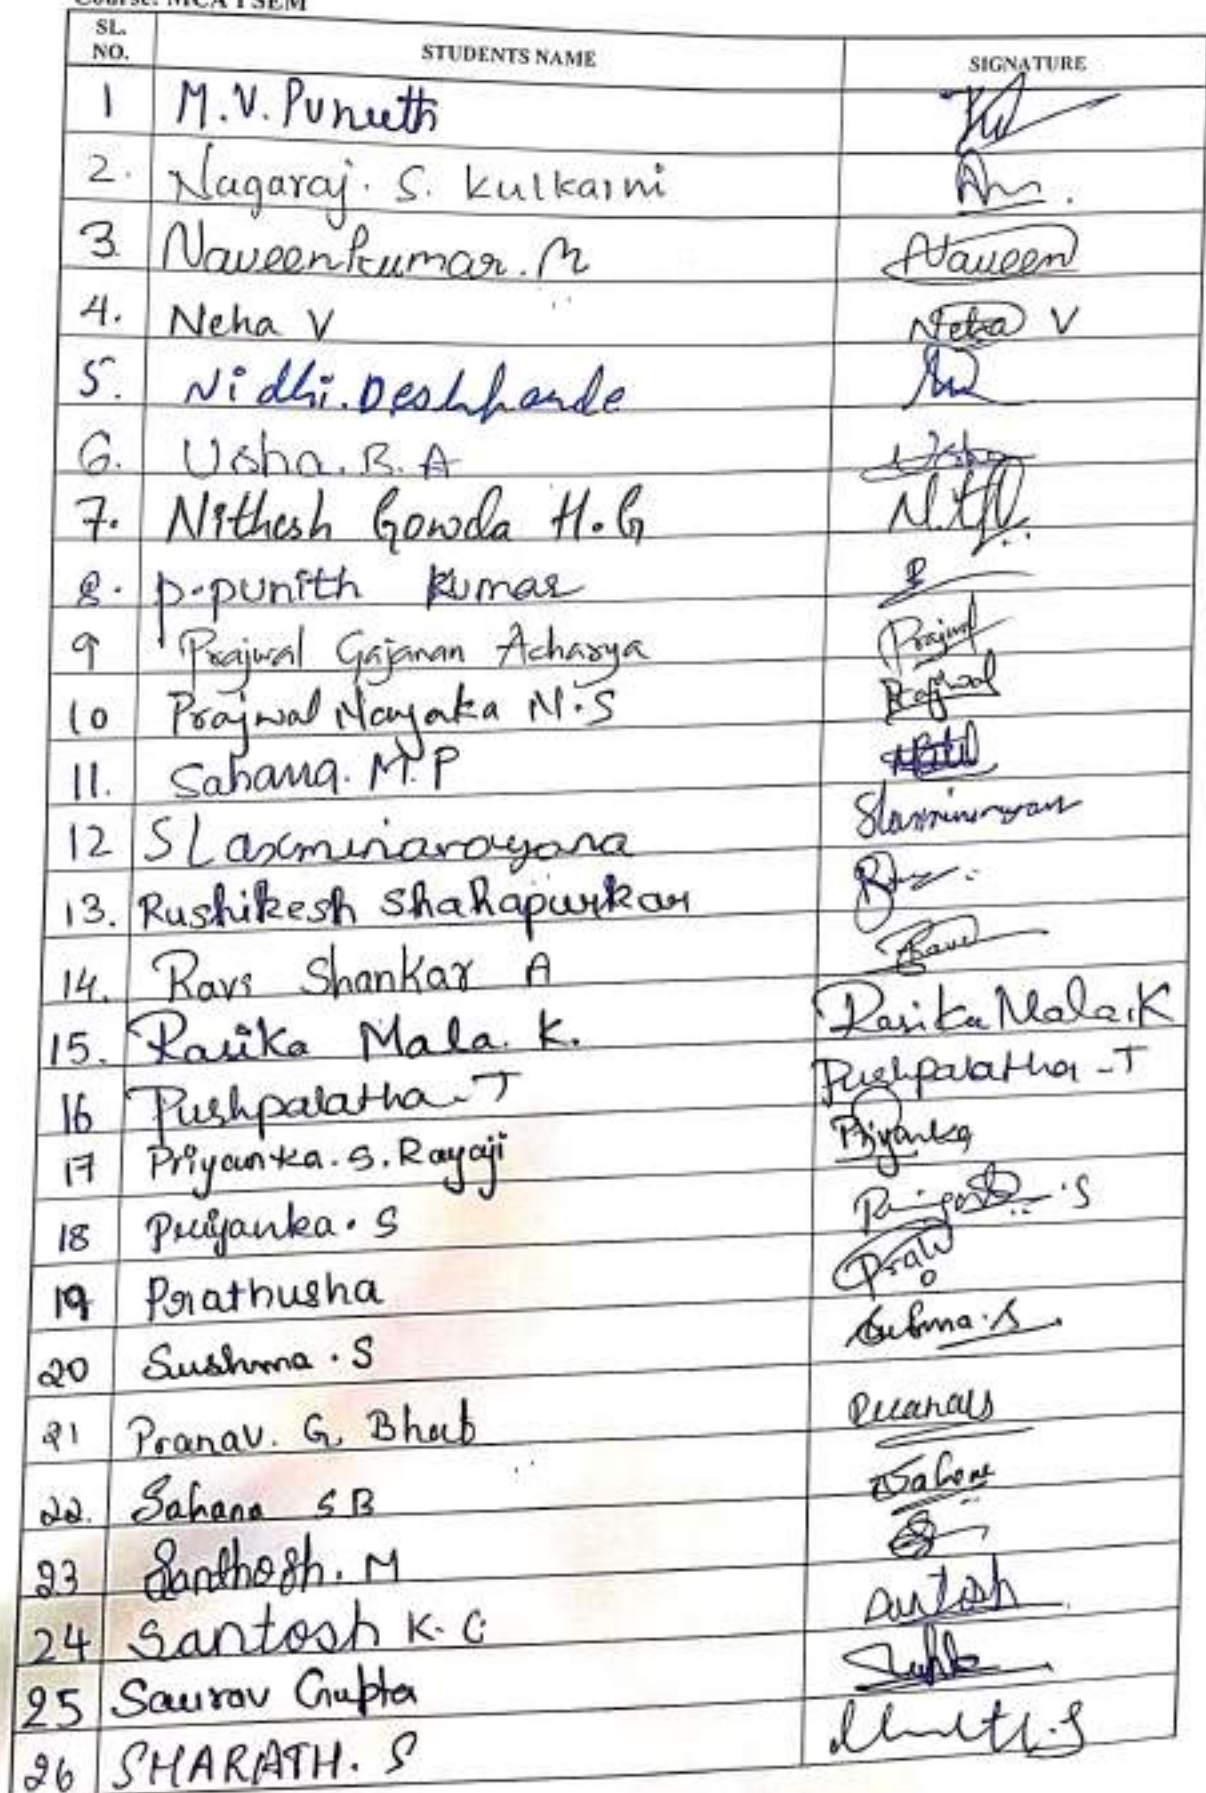 Course: MCA I SEM
SL. NO. STUDENTS NAME SIGNATURE
1 M.V. Puneeth
2. Nagaraj. S. Kulkarni
3. Naveenkumar. M Naveen
4. Neha V Neha V
5. Nidhi. Deshpande
6. Usha. B. A Usha
7. Nithesh Gowda H.G
8. P. Punith Kumar
9 Prajwal Gajanan Acharya Prajwal
10 Prajwal Nayaka N.S Prajwal
11. Sahana. M.P
12 S Laxminarayana Slaxminarayan
13. Rushikesh Shahapurkar
14. Ravi Shankar A Ravi
15. Rasika Mala. K. Rasika Mala.K
16 Pushpalatha-T Pushpalatha-T
17 Priyanka. S. Rayaji Priyanka
18 Priyanka. S
19 Prathusha
20 Sushma. S
21 Pranav. G. Bhat
22. Sahana SB Sahana
23 Santhosh. M
24 Santosh K. C. Santosh
25 Saurav Gupta
26 SHARATH. S